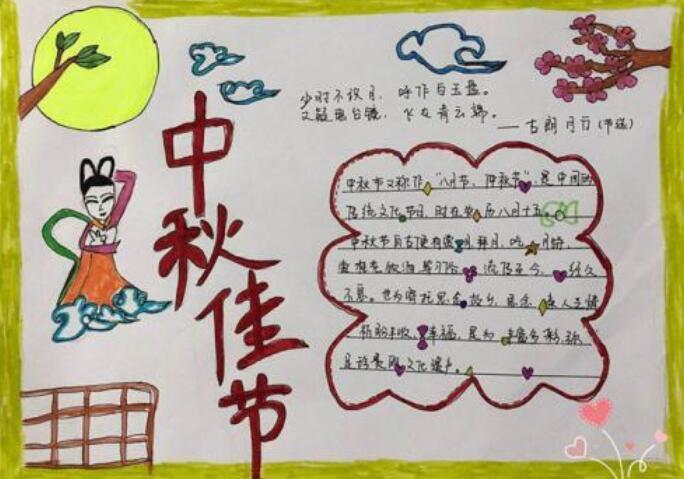 中秋佳节
少时不识月，呼作白玉盘。
又疑瑶台镜，飞在青云端。
——古朗月行（节选）
中秋节又称作“八月节、仲秋节”，是中国的
传统文化节日，时在农历八月十五。
中秋节自古便有赏月、拜月、吃月饼、
赏桂花、饮酒等习俗，流传至今，经久
不息。也为寄托思念故乡，思念亲人之情
祈盼丰收、幸福，是为丰富多彩、弥
足珍贵的文化遗产。